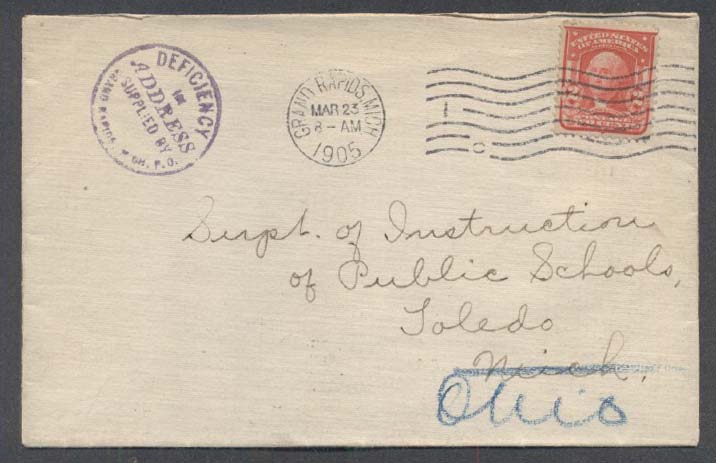 DEFICIENCY
in
ADDRESS
SUPPLIED BY
GRAND RAPIDS, MICH. P.O.
GRAND RAPIDS, MICH.
MAR 23
8-AM
1905
1
C
UNITED STATES
OF AMERICA
Surpt. of Instruction
of Public Schools,
Toledo
Mich.
Ohio